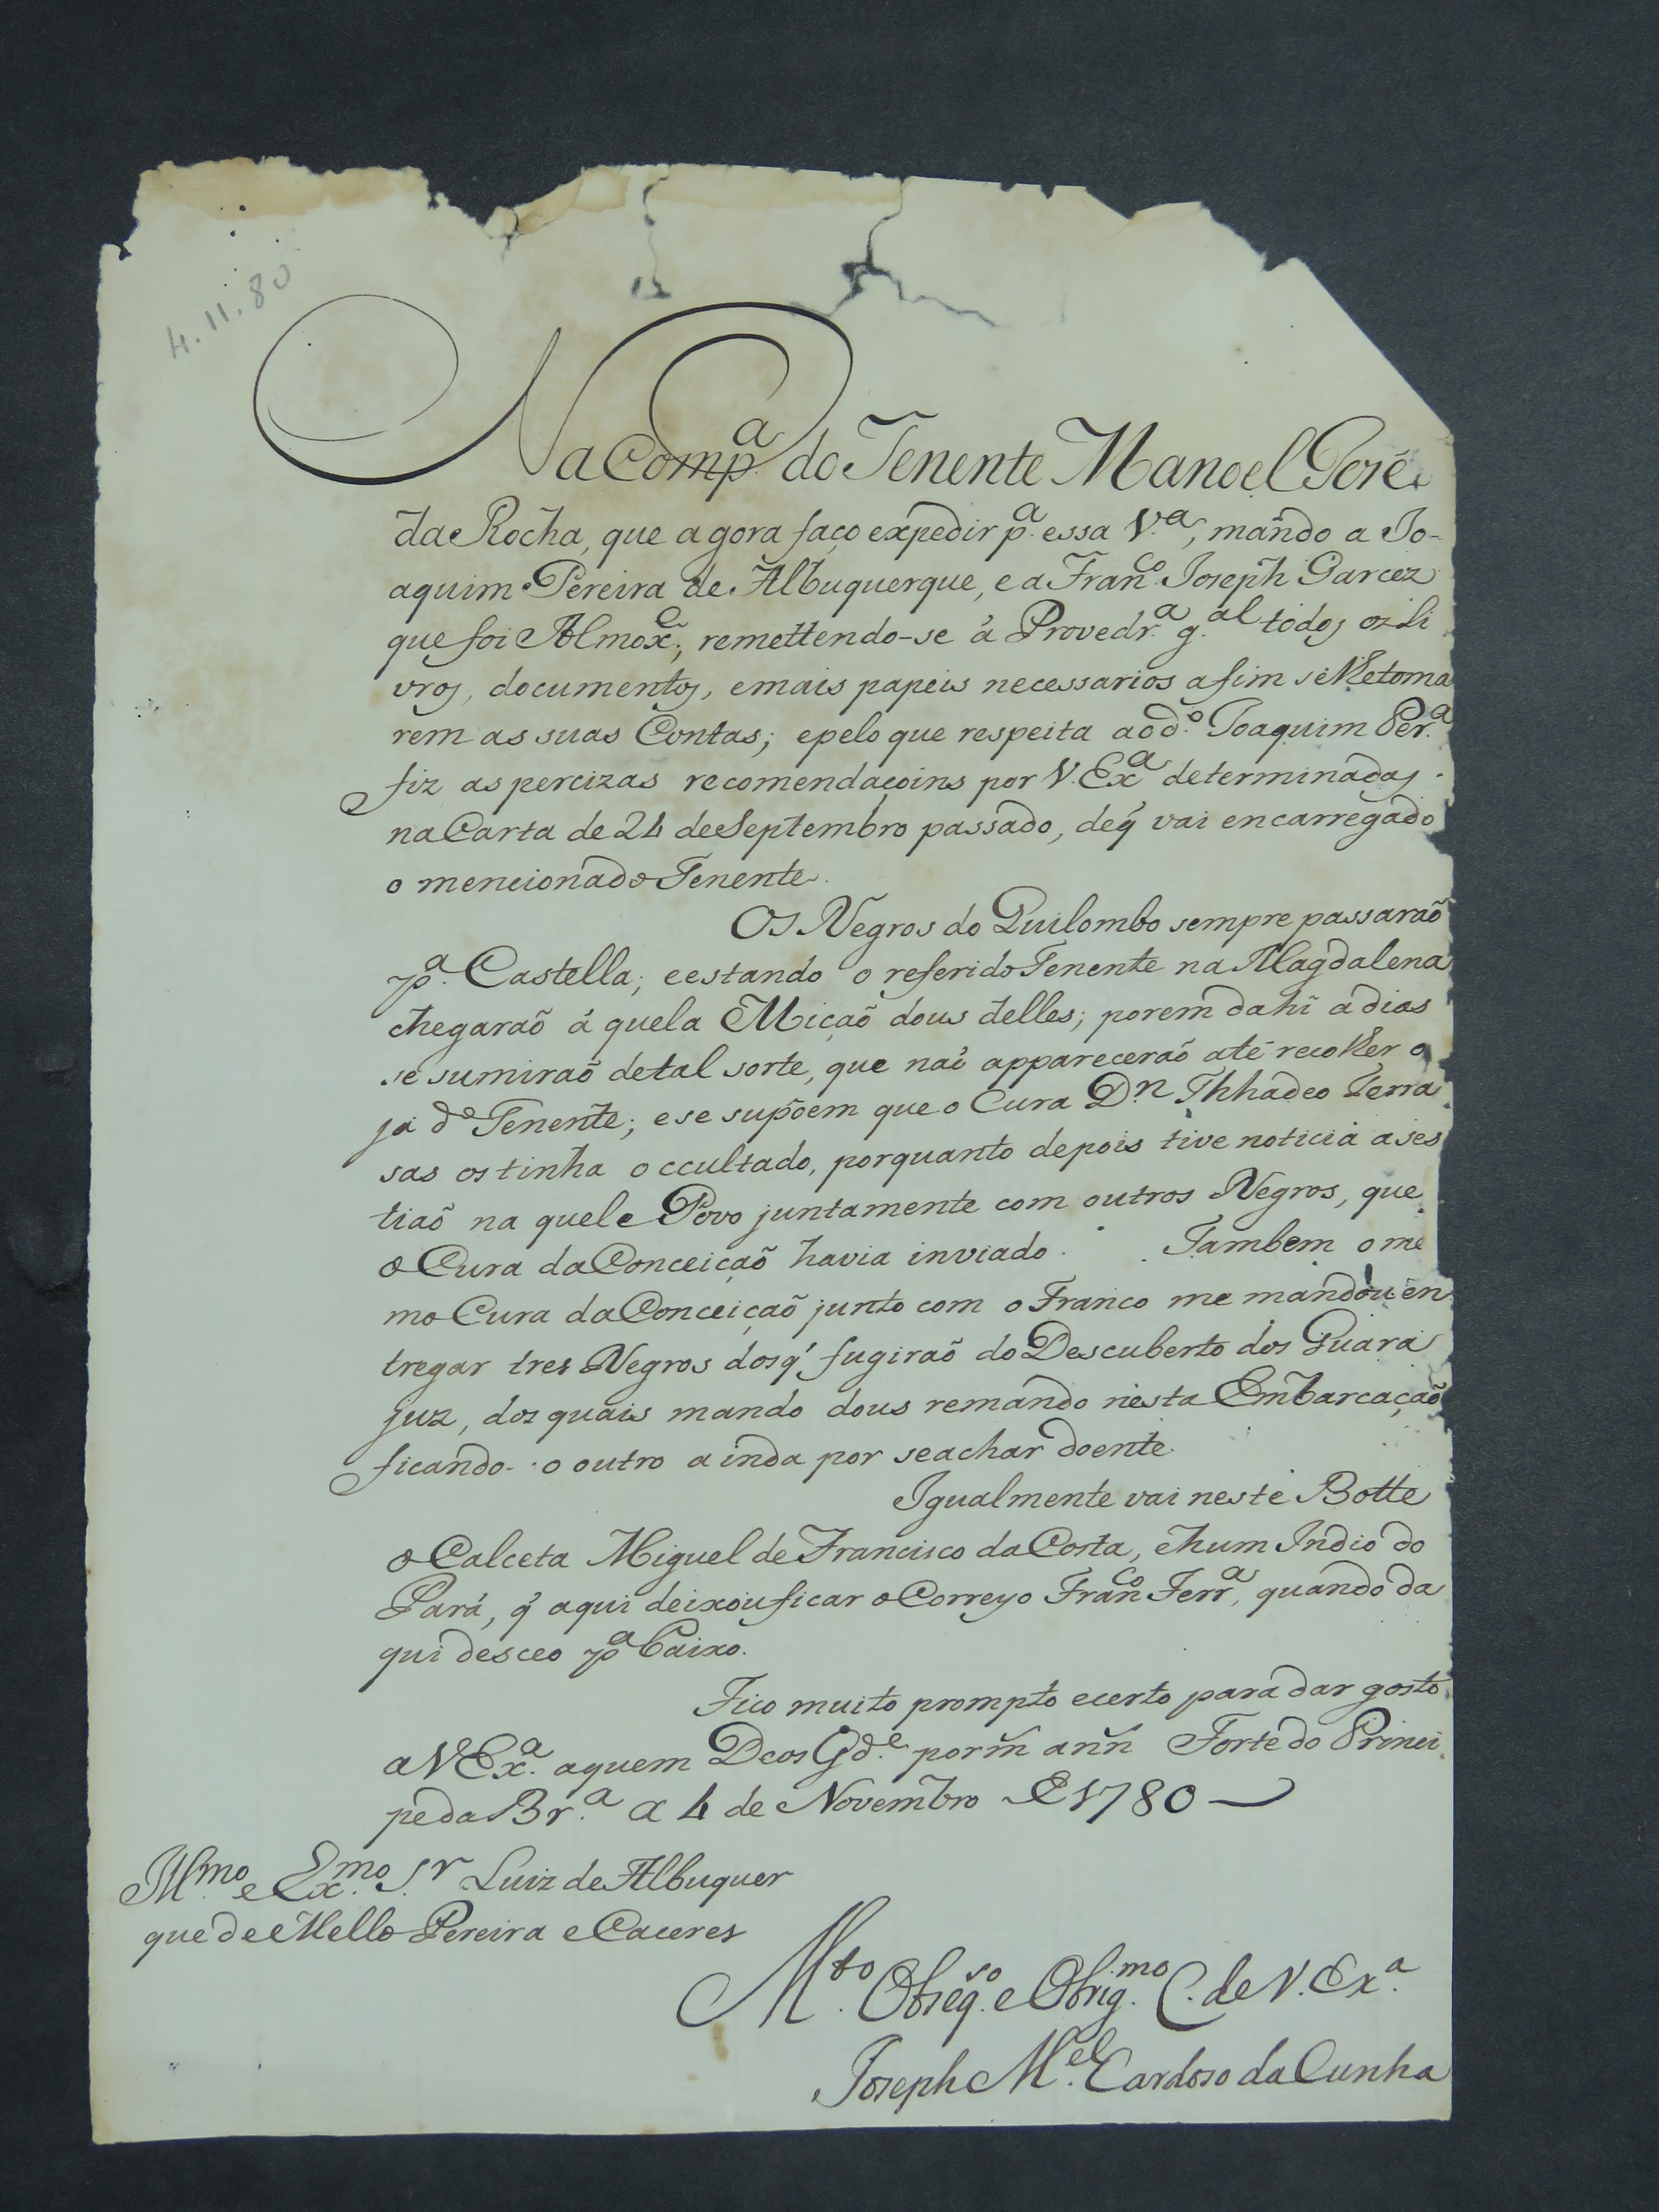 4.11.80
Na Comp.ª do Tenente Manoel José
da Rocha, que agora faço expedir p.ª essa V.ª, mando a Jo-
aquim Pereira de Albuquerque, e a Fran.co Joseph Garcez
que foi Almox.e, remettendo-se á Provedr.ª g.al todos os li
vros, documentos, e mais papeis necessarios afim se lhe toma
rem as suas Contas; e pelo que respeita ao d.º Joaquim Per.ª
fiz as percizas recomendaçoins por V. Ex.ª determinadas
na Carta de 24 de Septembro passado, de q' vai encarregado
o mencionado Tenente.
Os Negros do Quilombo sempre passaraõ
p.ª Castella; e estando o referido Tenente na Magdalena
chegaraõ á quela Miçaõ dous delles; porem dahi a dias
se sumiraõ de tal sorte, que naõ apparecerаõ até recolher o
já d.º Tenente; e se supõem que o Cura D.n Thhadeo Terra
sas os tinha occultado, porquanto depois tive noticia a ses
tiaõ na quele Povo juntamente com outros Negros, que
o Cura da Conceiçaõ havia inviado. Tambem o me
mo Cura da Conceiçaõ junto com o Franco me mandou en
tregar tres Negros dos q' fugiraõ do Descuberto dos Guara
juz, dos quais mando dous remando nesta Embarcaçaõ
ficando o outro ainda por se achar doente.
Igualmente vai neste Botte
o Calceta Miguel de Francisco da Costa, e hum Indio do
Pará, q' aqui deixou ficar o Correyo Fran.co Ferr.ª, quando da
qui desceo p.ª baixo.
Fico muito prompto e certo para dar gosto
a V Ex.ª aquem Deos G.de por m̃ ann̂ Forte do Princi
pe da Br.ª a 4 de Novembro de 1780
Ill.mo e Ex.mo S.r Luiz de Albuquer
que de Mello Pereira e Caceres
M.to Obseq.so e Obrig.mo C. de V. Ex.ª
Joseph M.el Cardoso da Cunha